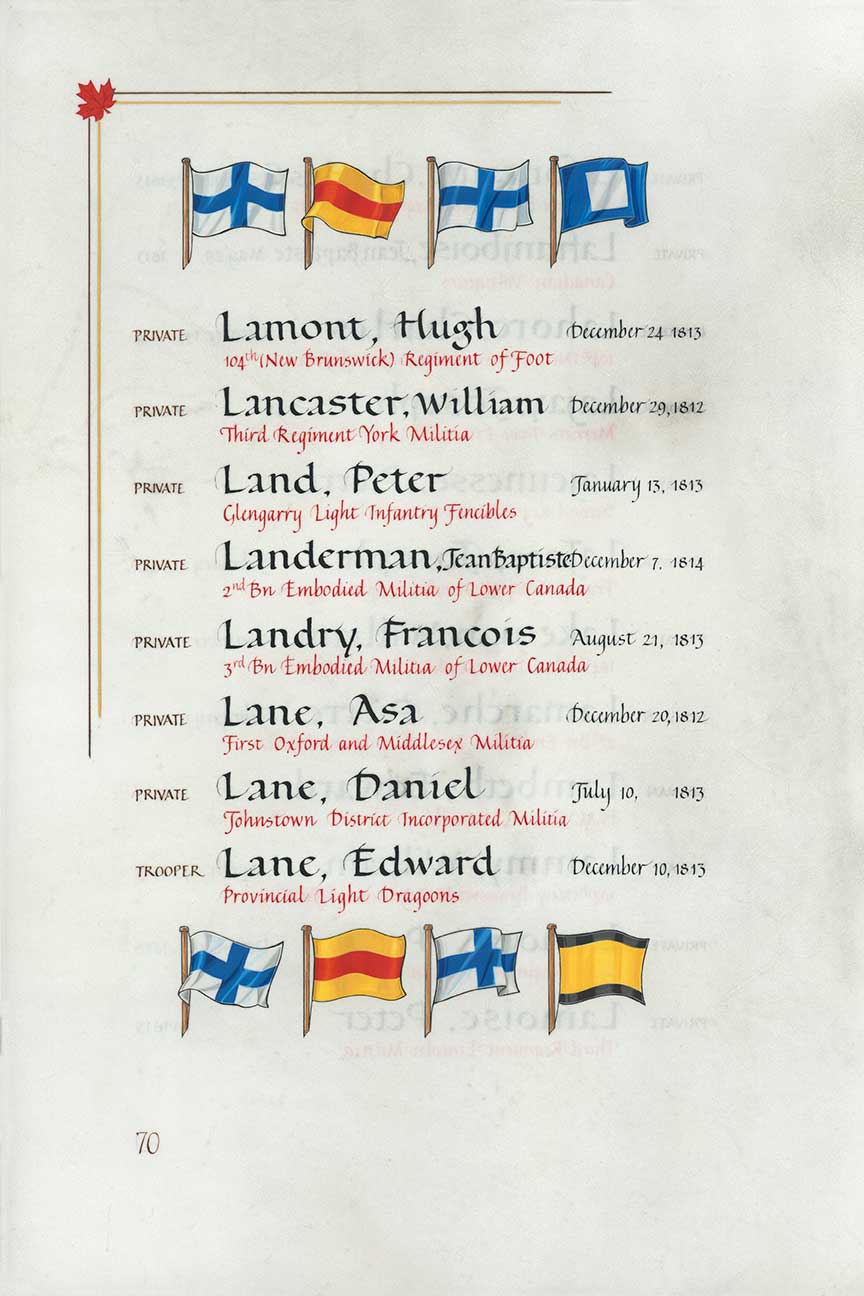 PRIVATE Lamont, Hugh December 24 1813
104th (New Brunswick) Regiment of Foot
PRIVATE Lancaster, William December 29, 1812
Third Regiment York Militia
PRIVATE Land, Peter January 13, 1813
Glengarry Light Infantry Fencibles
PRIVATE Landerman, Jean Baptiste December 7, 1814
2nd Bn Embodied Militia of Lower Canada
PRIVATE Landry, Francois August 21, 1813
3rd Bn Embodied Militia of Lower Canada
PRIVATE Lane, Asa December 20, 1812
First Oxford and Middlesex Militia
PRIVATE Lane, Daniel July 10, 1813
Johnstown District Incorporated Militia
TROOPER Lane, Edward December 10, 1813
Provincial Light Dragoons
70